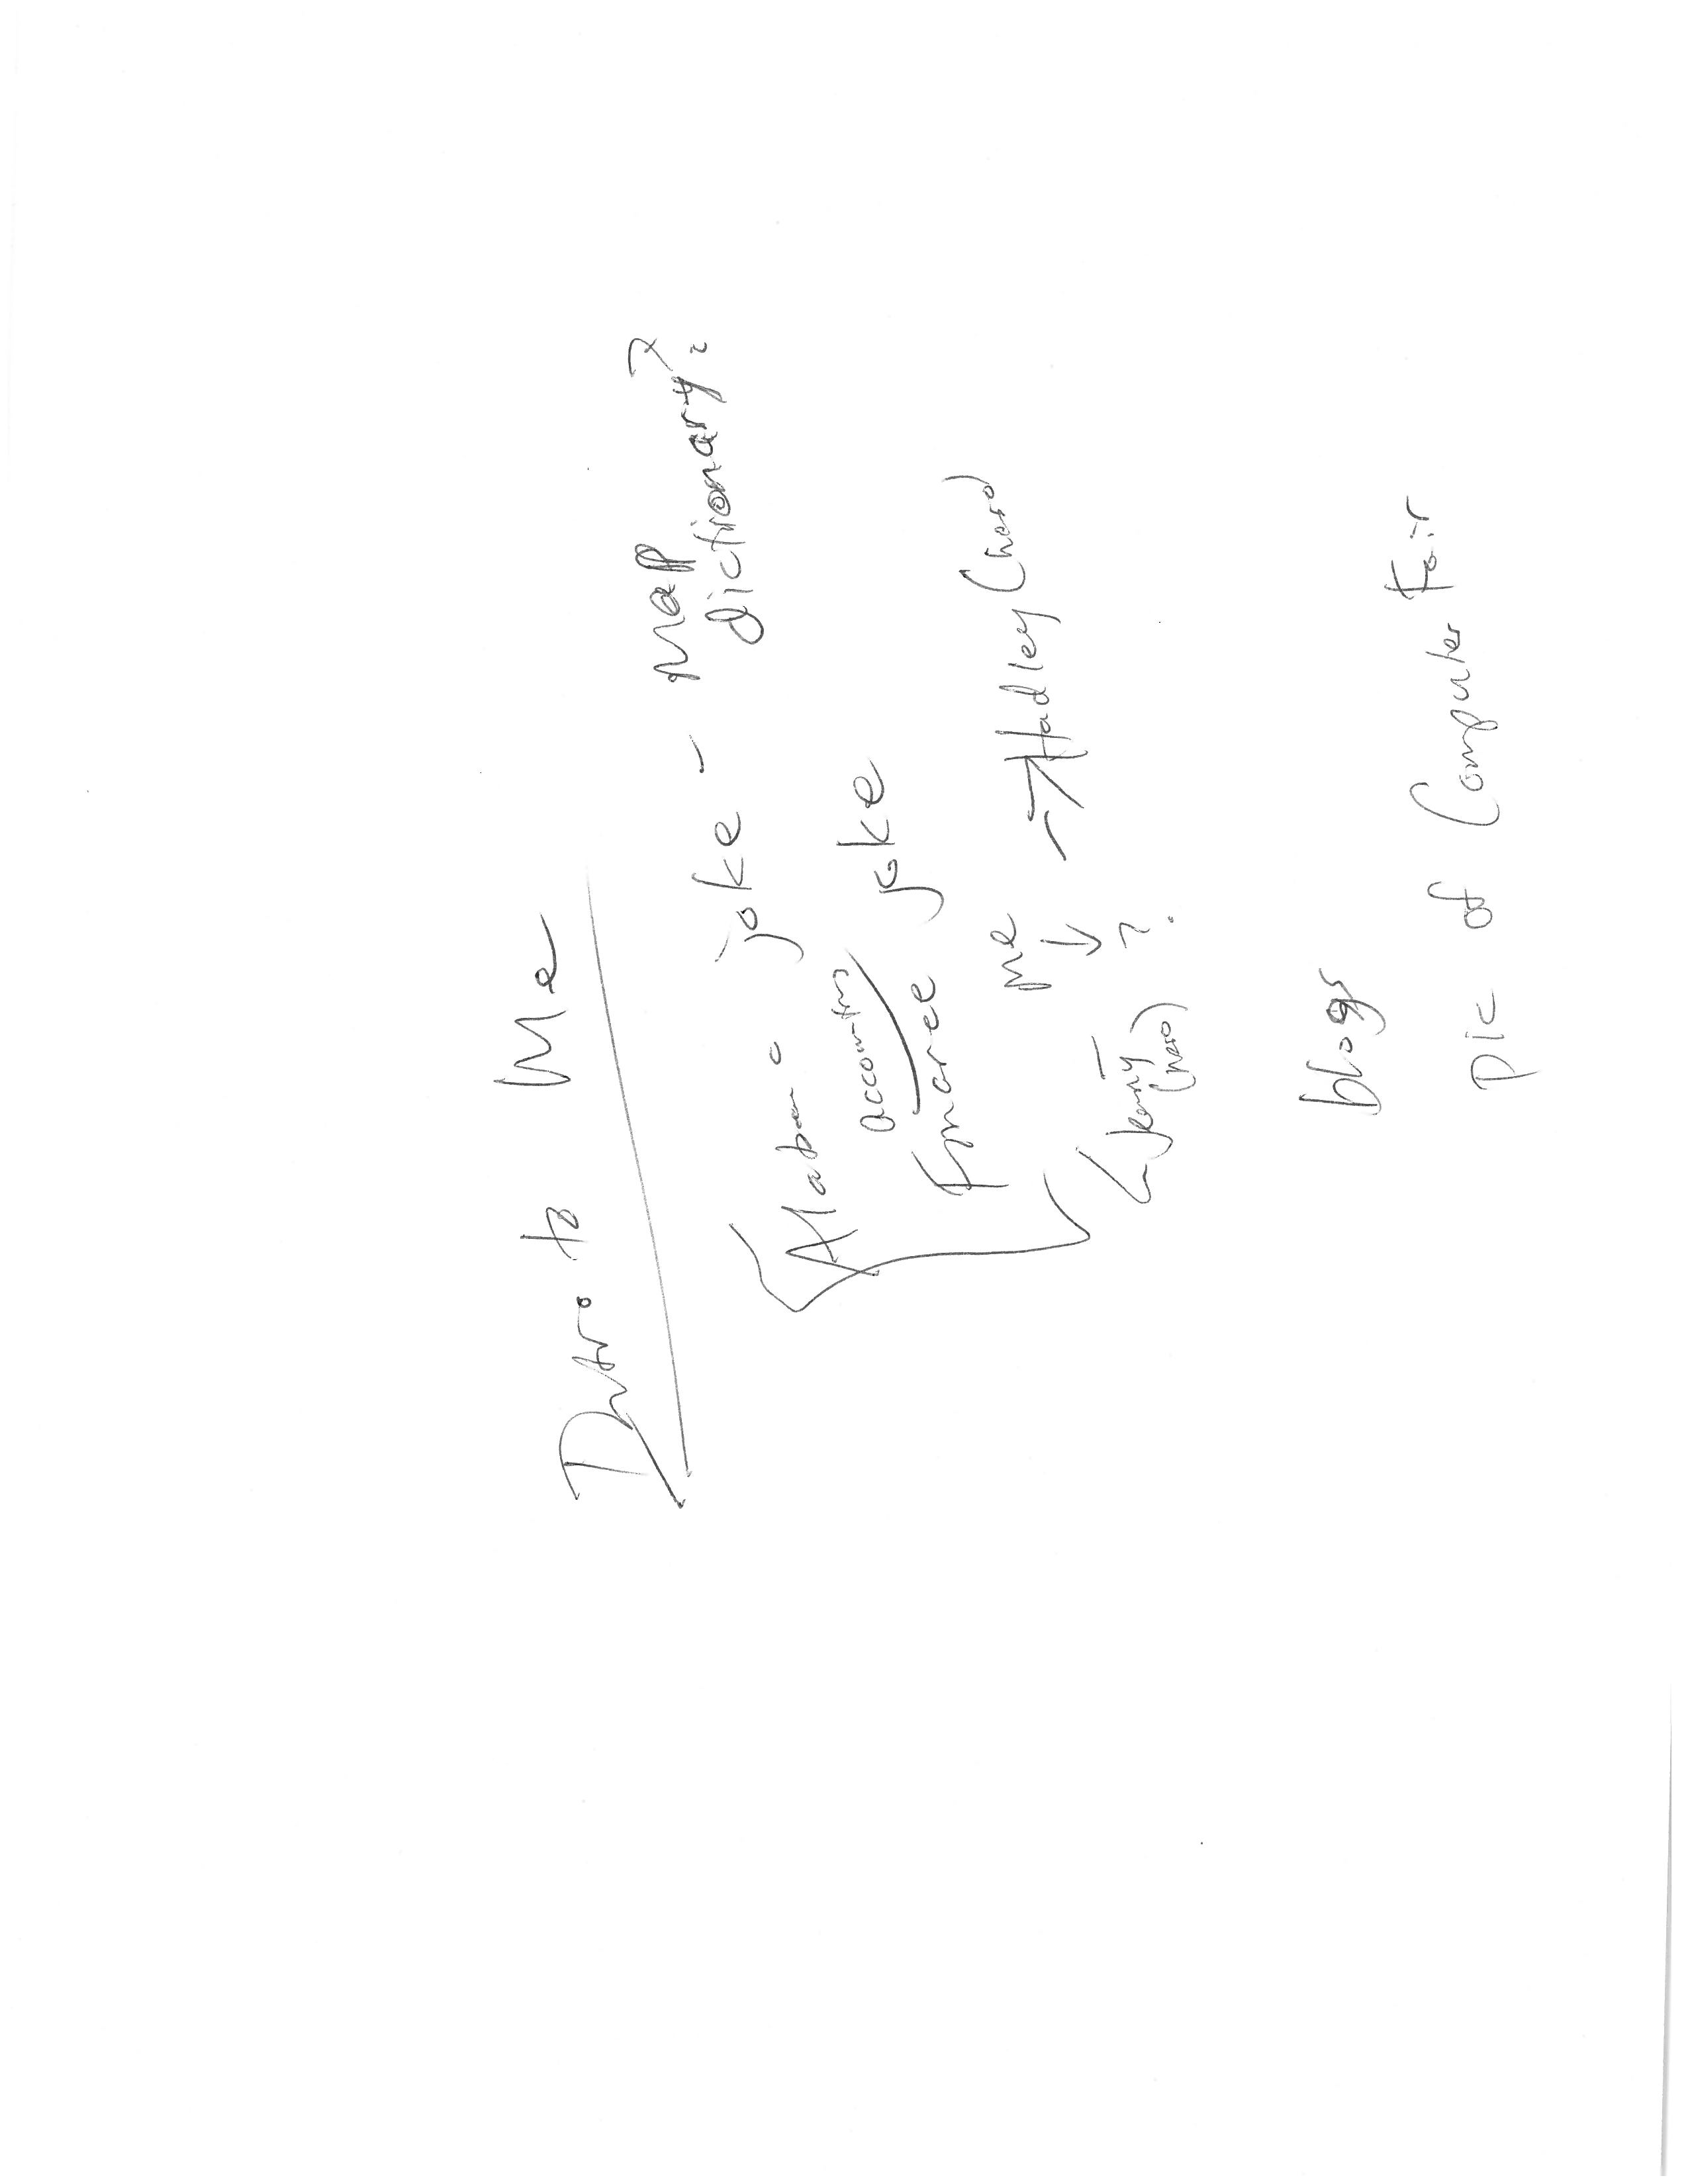 Intro to Me
Alabama joke - map
dictionary?
accounting
Finance joke
me
→ Hadley (hero)
Jenny
(hero) ?
blogs
pic of Computer Fair